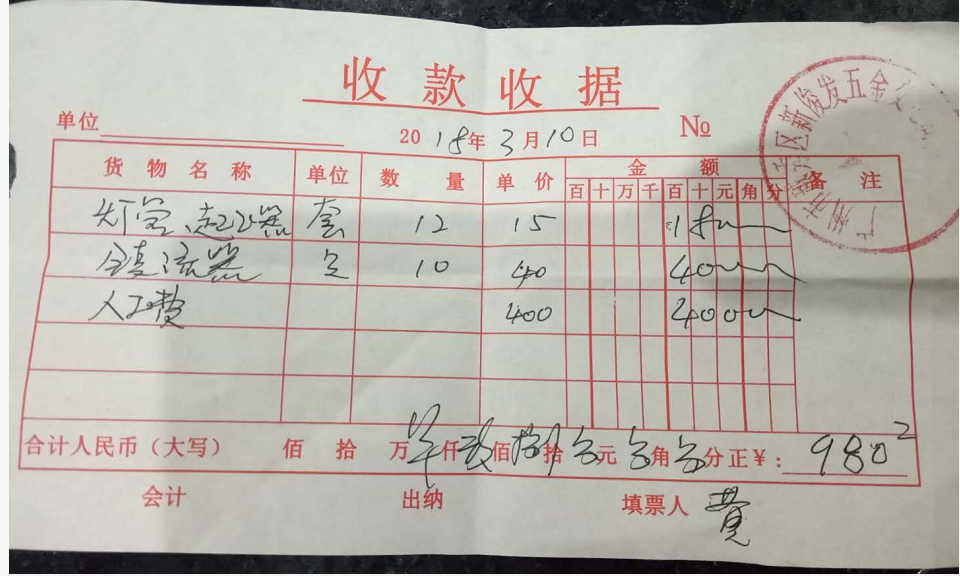 收款收据
单位
2018年3月10日 №
货物名称 单位 数量 单价 金额 备注
百十万千百十元角分
灯管、起辉器 套 12 15 180
镇流器 只 10 40 400
人工费 400 400
合计人民币（大写） 佰 拾 万 仟 玖佰捌拾 元 角 分正￥: 980
会计 出纳 填票人
广州市 区新俊发五金